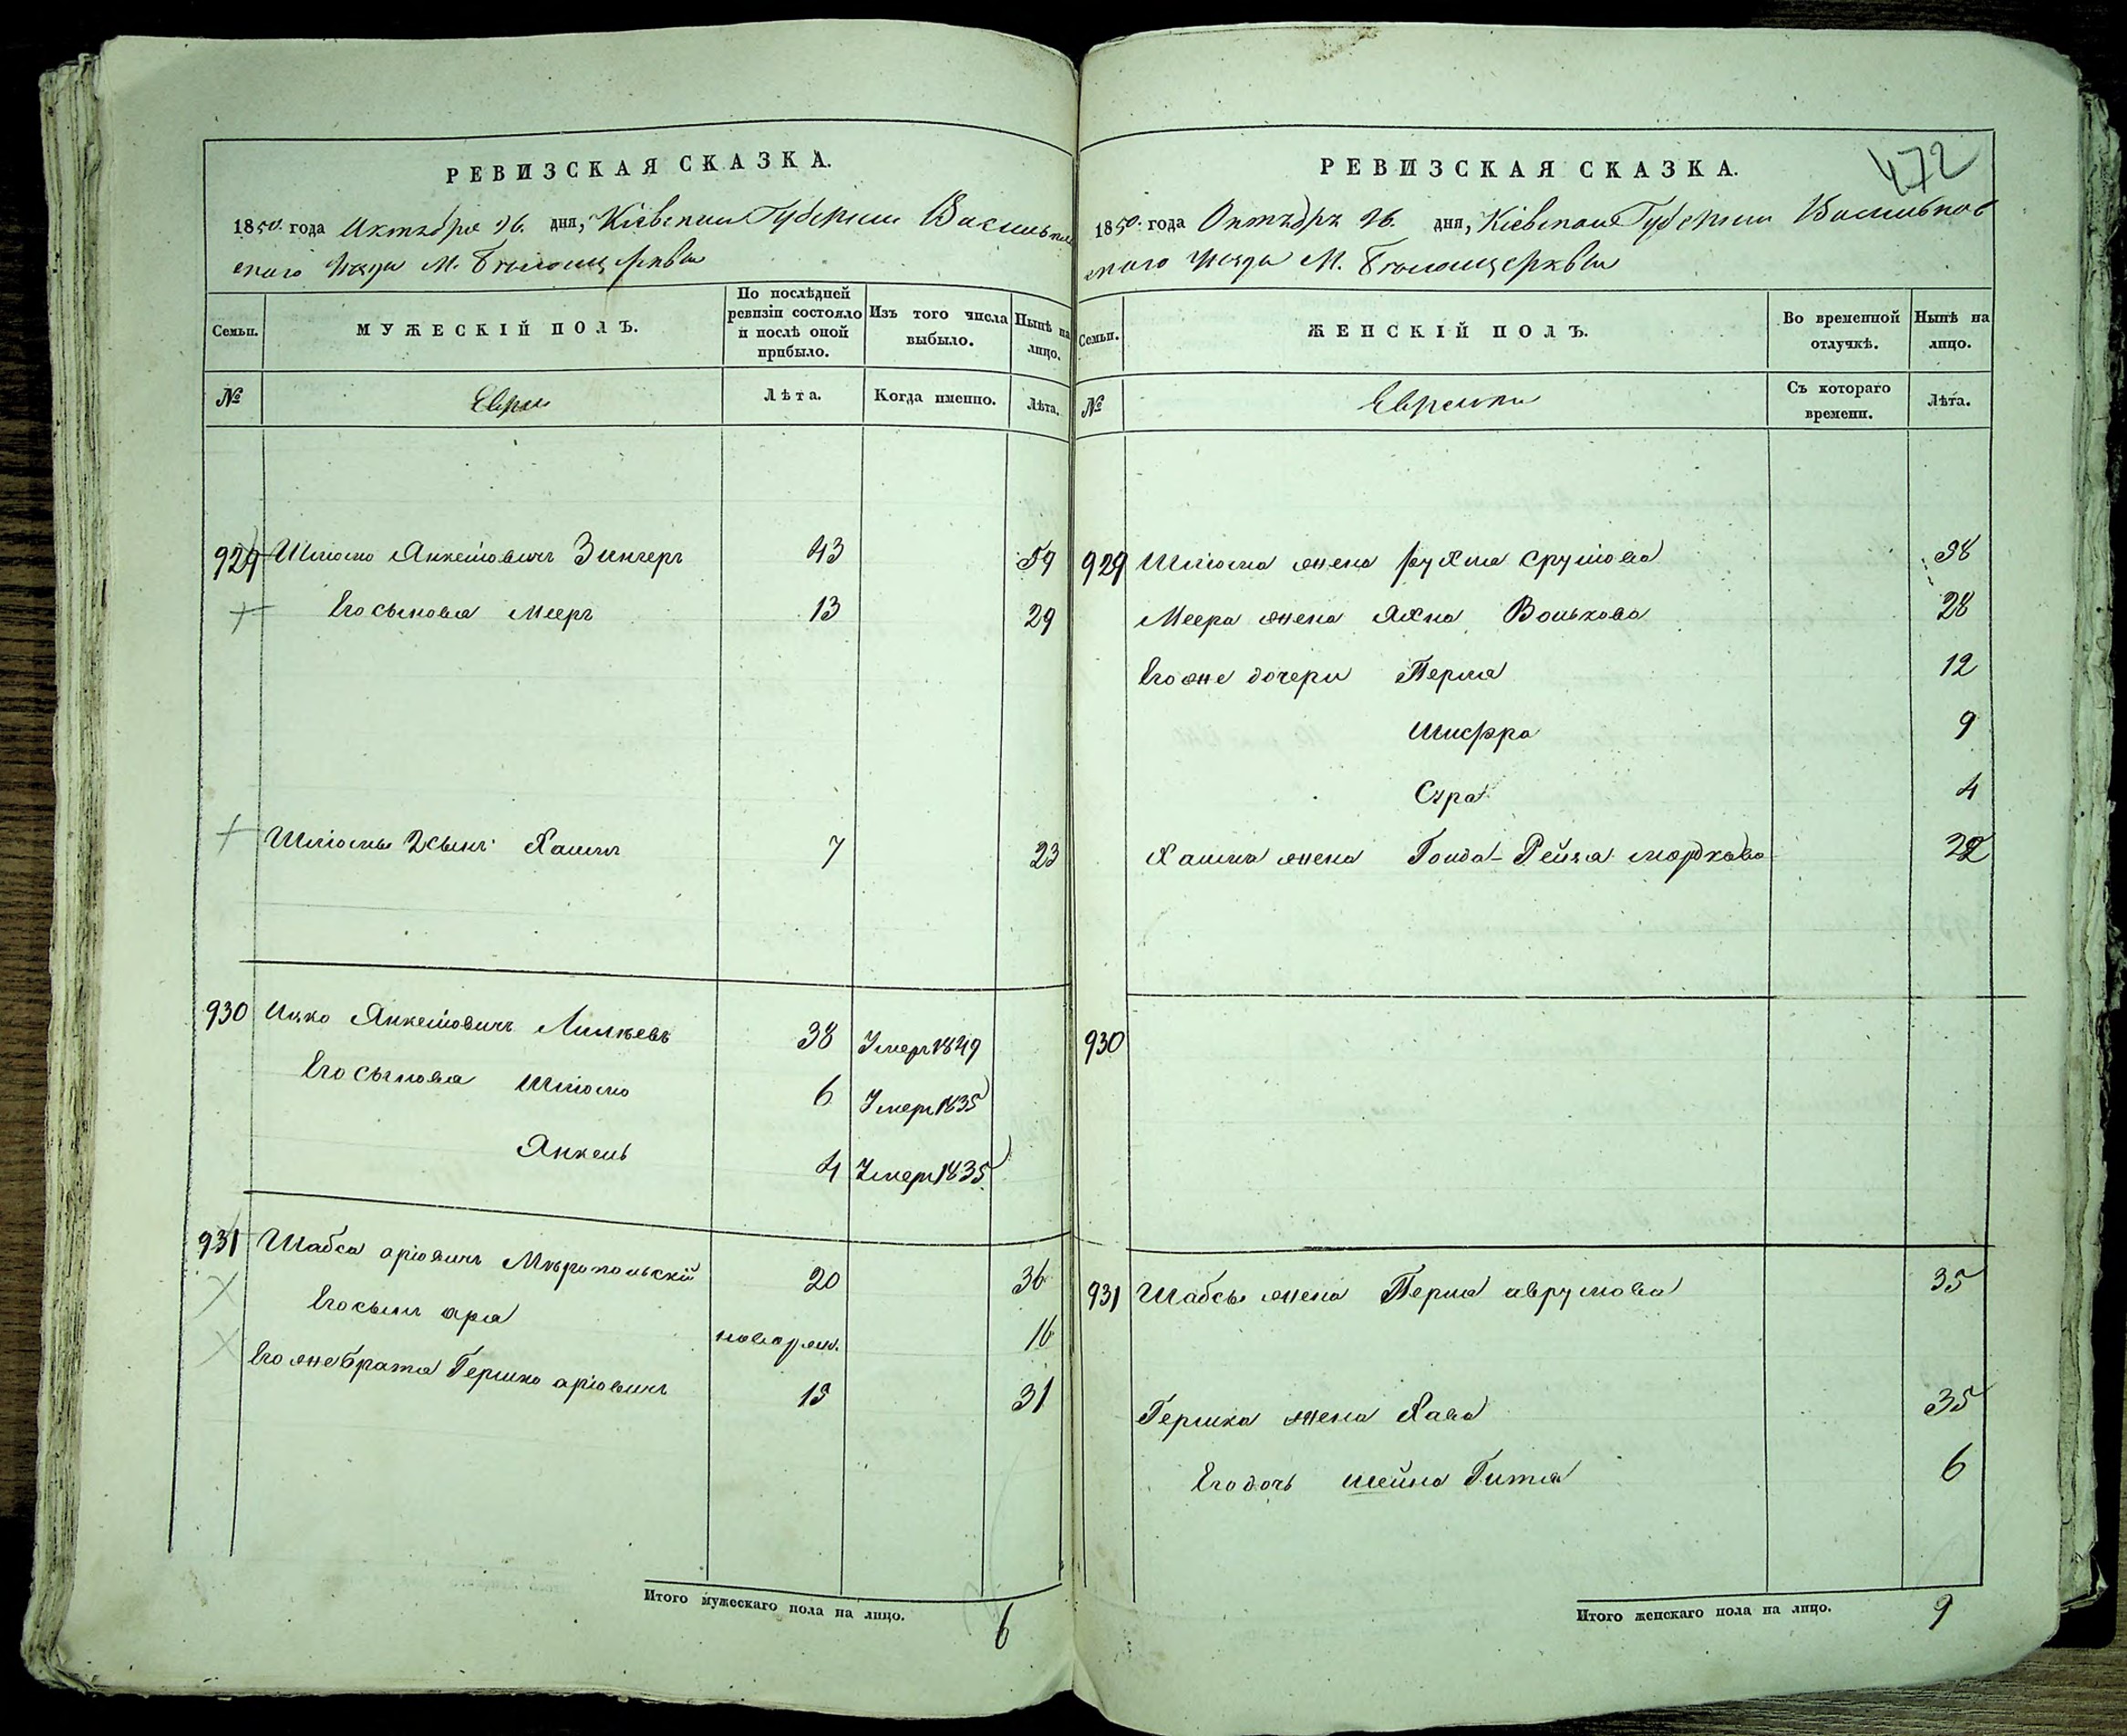 РЕВИЗСКАЯ СКАЗКА.
1850. года Октября 26. дня, Кіевской Губерніи Васильков
скаго уезда М. Белоцерквы
Семьи.
МУЖЕСКІЙ ПОЛЪ.
По послѣдней ревизіи состояло и послѣ оной прибыло.
Изъ того числа выбыло.
Нынѣ на лицо.
№
Евреи
Лѣта.
Когда именно.
Лѣта.
929 Шліома Янкеліовичъ Зингеръ 43 59
Его сыновья Мееръ 13 29
Шліомы 2 сынъ Хаимъ 7 23
930 Ицко Янкеліовичъ 38 Умеръ 1849
Его сыновья Шліомо 6 Умеръ 1835
Янкель 4 Умеръ 1835
931 Шабса аріовичъ Миропольскій 20 36
Его сынъ ара новорож. 16
Его же братъя Гершко аріовичъ 15 31
Итого мужескаго пола на лицо. 6
472
РЕВИЗСКАЯ СКАЗКА.
1850. года Октября 26. дня, Кіевской Губерніи Васильков
скаго уезда М. Белоцерквы
Семьи.
ЖЕНСКІЙ ПОЛЪ.
Во временной отлучкѣ.
Нынѣ на лицо.
№
Еврейки
Съ котораго времени.
Лѣта.
929 Шліома жена Рухля Срулiова 58
Меера жена Яхна Волькова 28
Его же дочери Перля 12
Шифра 9
Сура 4
Хаима жена Голда-Рейзя мордкова 22
930
931 Шабсы жена Перля аврумова 35
Гершка жена Хава 35
Его дочь шейна Гитля 6
Итого женскаго пола на лицо. 9